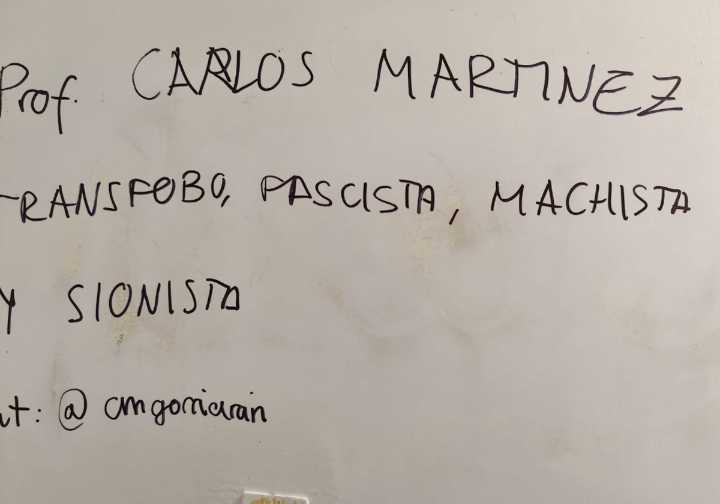 Prof. CARLOS MARTINEZ
TRANSFOBO, FASCISTA, MACHISTA
Y SIONISTA
t: @cmgorriaran